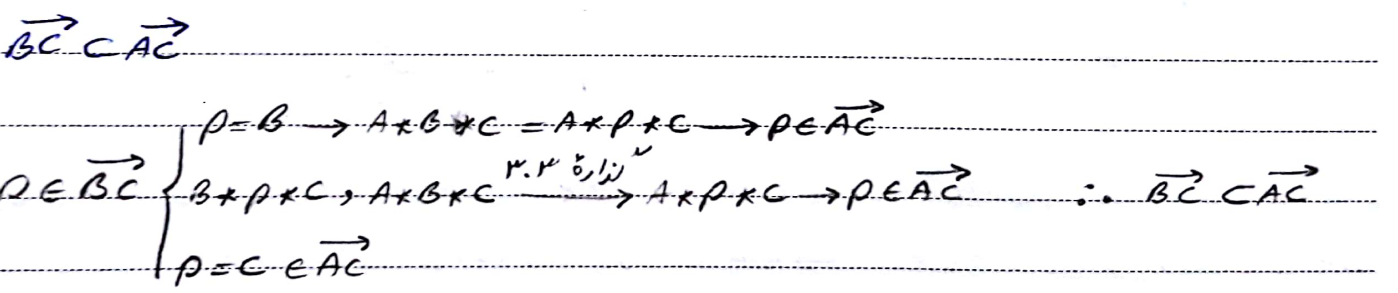 $\overrightarrow{BC} \subset \overrightarrow{AC}$
$P = B \rightarrow A * B * C = A * P * C \rightarrow P \in \overrightarrow{AC}$
$P \in \overrightarrow{BC}$ { $B * P * C$ , $A * B * C \xrightarrow{\text{گزارهٔ ۳.۳}} A * P * C \rightarrow P \in \overrightarrow{AC}$ $\therefore \overrightarrow{BC} \subset \overrightarrow{AC}$
$P = C \in \overrightarrow{AC}$